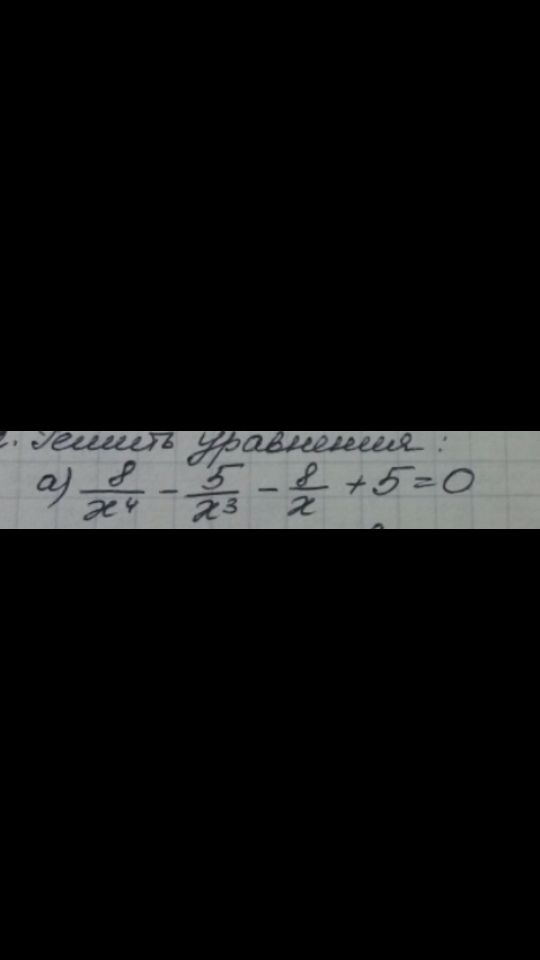 Решить уравнения:
а) 8/x⁴ - 5/x³ - 8/x + 5 = 0